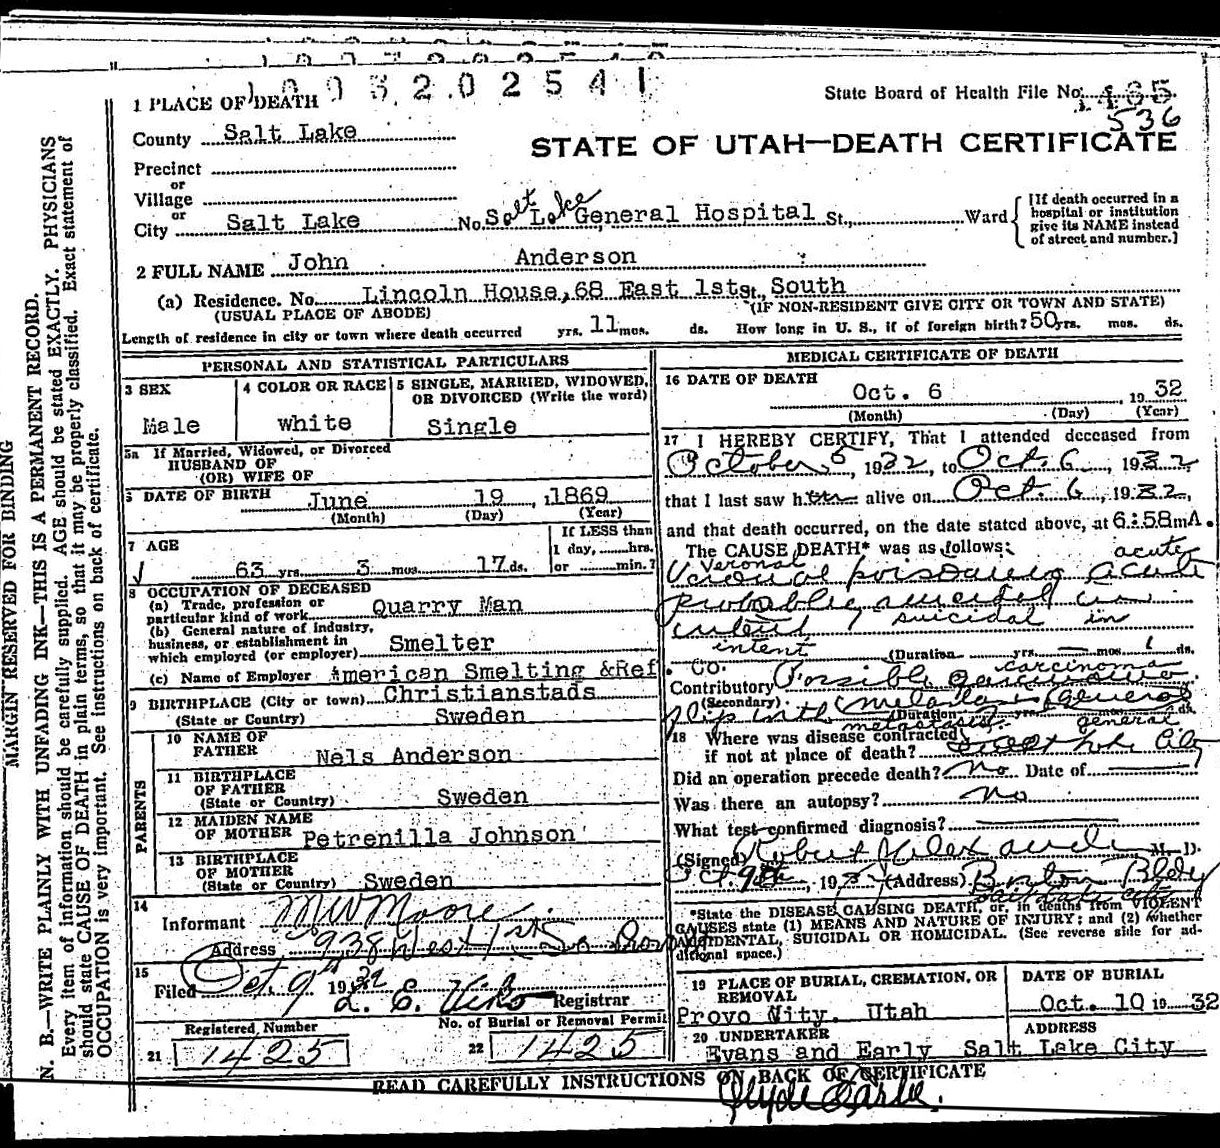 1003202541
State Board of Health File No. 165
536
1 PLACE OF DEATH
County Salt Lake
STATE OF UTAH—DEATH CERTIFICATE
Precinct
or
Village
or
City Salt Lake No. Salt Lake General Hospital St., Ward
[If death occurred in a hospital or institution give its NAME instead of street and number.]
2 FULL NAME John Anderson
(a) Residence. No. Lincoln House, 68 East 1st St., South
(USUAL PLACE OF ABODE) (IF NON-RESIDENT GIVE CITY OR TOWN AND STATE)
Length of residence in city or town where death occurred yrs. 11 mos. ds. How long in U. S., if of foreign birth? 50 yrs. mos. ds.
PERSONAL AND STATISTICAL PARTICULARS
3 SEX
Male
4 COLOR OR RACE
white
5 SINGLE, MARRIED, WIDOWED, OR DIVORCED (Write the word)
Single
5a If Married, Widowed, or Divorced
HUSBAND OF
(OR) WIFE OF
6 DATE OF BIRTH June 19, 1869
(Month) (Day) (Year)
7 AGE
63 yrs. 3 mos. 17 ds.
If LESS than
1 day, hrs.
or min.?
8 OCCUPATION OF DECEASED
(a) Trade, profession or particular kind of work Quarry Man
(b) General nature of industry, business, or establishment in which employed (or employer) Smelter
(c) Name of Employer American Smelting &Ref. Co.
9 BIRTHPLACE (City or town) Christianstads
(State or Country) Sweden
PARENTS
10 NAME OF FATHER Nels Anderson
11 BIRTHPLACE OF FATHER
(State or Country) Sweden
12 MAIDEN NAME OF MOTHER Petrenilla Johnson
13 BIRTHPLACE OF MOTHER
(State or Country) Sweden
14
Informant M W Moore
Address 938 West 1st So Provo
15
Filed Oct. 9th 1932
L. E. Registrar
Registered Number
21 1425
No. of Burial or Removal Permit
22 1425
MEDICAL CERTIFICATE OF DEATH
16 DATE OF DEATH
Oct. 6, 1932
(Month) (Day) (Year)
17 I HEREBY CERTIFY, That I attended deceased from
October 5, 1932, to Oct. 6, 1932
that I last saw him alive on Oct. 6, 1932,
and that death occurred, on the date stated above, at 6:58 m A.
The CAUSE DEATH* was as follows:
Veronal acute
Veronal poisoning acute
probably suicidal in
intent suicidal in
intent
(Duration yrs. mos. 1 ds.
carcinoma
Contributory Possible carcinoma
(Secondary)
lip with metastasis general
(Duration yrs. ds.
metastasis. general
18 Where was disease contracted
if not at place of death? Salt Lake City
Did an operation precede death? No Date of
Was there an autopsy? No
What test confirmed diagnosis?
(Signed) Robert Alexander M. D.
Oct. 9th, 1932 (Address) Boston Bldg
*State the DISEASE CAUSING DEATH, or, in deaths from VIOLENT
CAUSES state (1) MEANS AND NATURE OF INJURY; and (2) whether
ACCIDENTAL, SUICIDAL OR HOMICIDAL. (See reverse side for additional space.)
19 PLACE OF BURIAL, CREMATION, OR REMOVAL
Provo Nity. Utah
DATE OF BURIAL
Oct. 10 1932
20 UNDERTAKER
Evans and Early
ADDRESS
Salt Lake City
READ CAREFULLY INSTRUCTIONS ON BACK OF CERTIFICATE
MARGIN RESERVED FOR BINDING
N. B.—WRITE PLAINLY WITH UNFADING INK—THIS IS A PERMANENT RECORD.
Every item of information should be carefully supplied. AGE should be stated EXACTLY. PHYSICIANS
should state CAUSE OF DEATH in plain terms, so that it may be properly classified. Exact statement of
OCCUPATION is very important. See instructions on back of certificate.